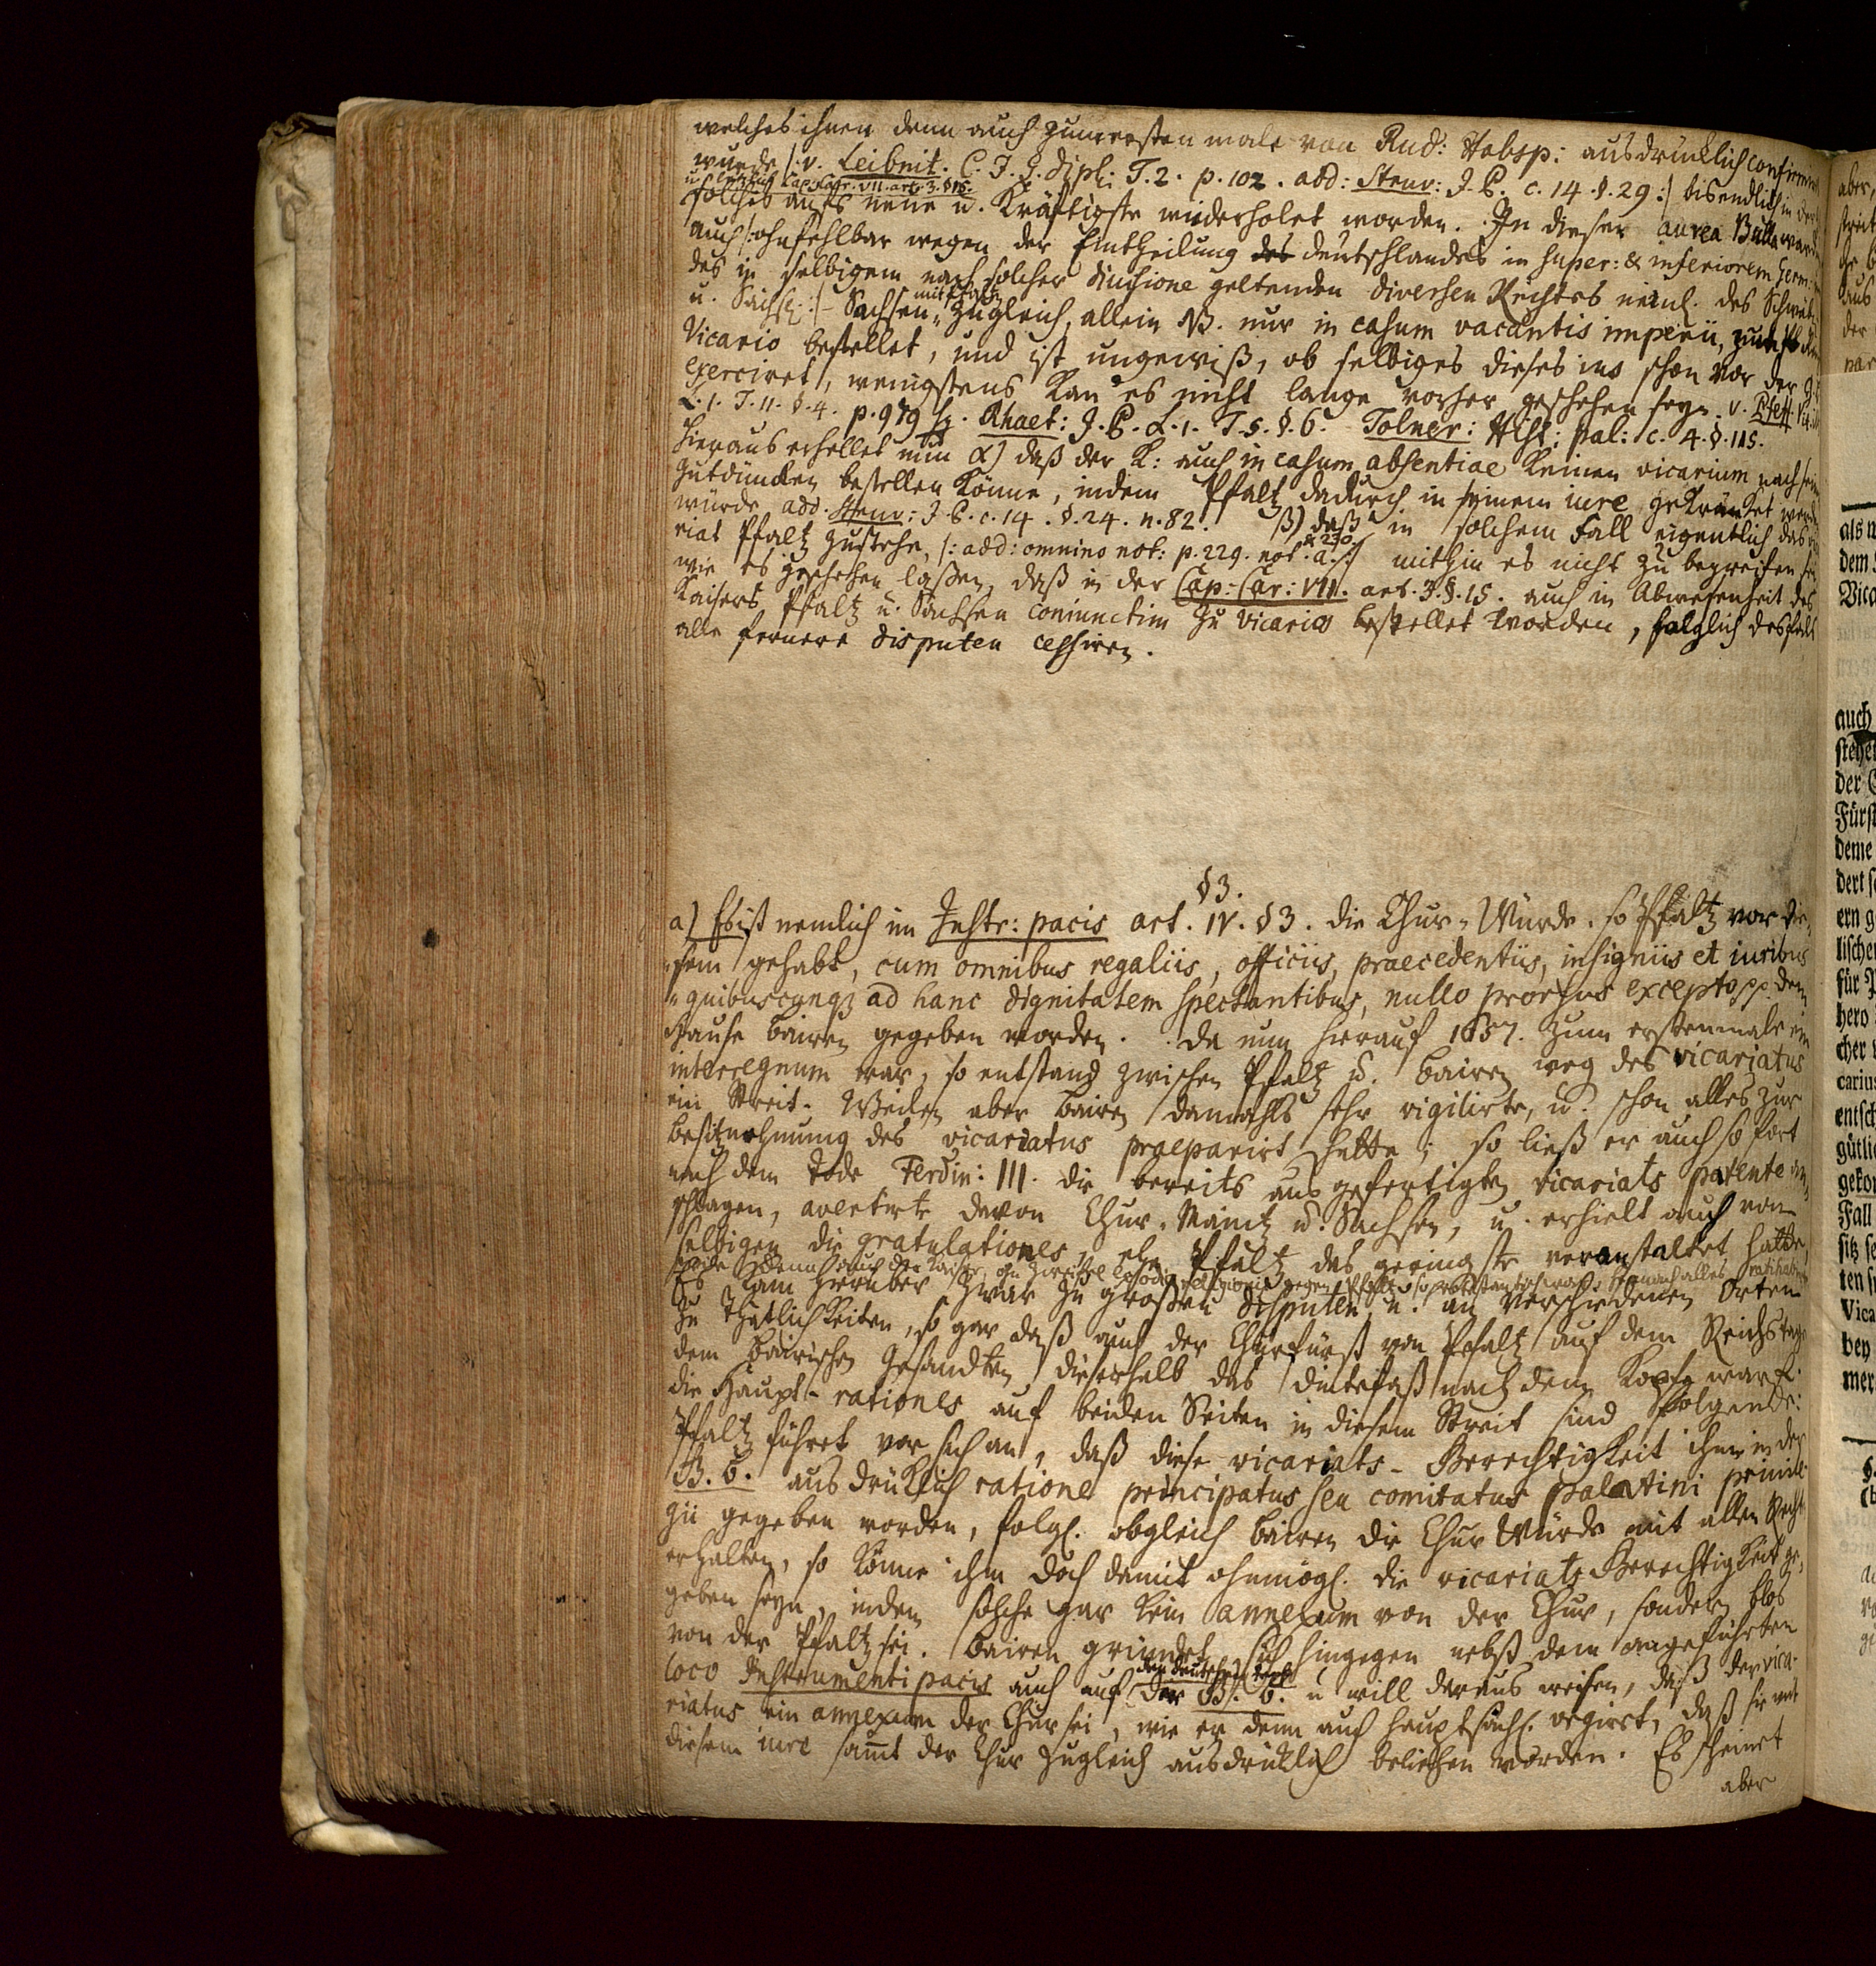 welches ihnen denn auch zum ersten male von Rud: Habsp: ausdrücklich confirmiret
wurde /: v. Leibnit. C. J. G. dipl: T. 2. p. 102. add: Struv: J. P. c. 14. §. 29 :/ bis endlich in der
u. letztlich Cap. Car. VII. art. 3. §. 15.
solches aufs neue u. kräftigste wiederholet worden. In dieser aurea Bulla ward
auch /: ohnfehlbar wegen der Eintheilung des deutschlandes in super: & inferiorem Germ:
des in selbigem nach solcher divisione geltenden diversen Rechtes neml. des Schwäb.
u. Sächs: :/ Sachsen mit Pfaltz zugleich, allein NB. nur in casum vacantis imperii, zum
Vicario bestellet, und ist ungewiß, ob selbiges dieses ius schon vor der
exerciret, wenigstens kan es nicht lange vorher geschehen seyn. v. Pfeff. Vitr.
L. 1. T. 11. §. 4. p. 979 sq. Rhaet: J. P. L. 1. T. 5. §. 6. Tolner: Hist: pal: c. 4. §. 115.
Hieraus erhellet nun α) daß der K: auch in casum absentiae keinen vicarium nach sein
gutdüncken bestellen könne, indem Pfaltz dadurch in seinem iure gekräncket werden
würde add. Struv: J. P. c. 14. §. 24. n. 82. β) daß in solchem Fall eigentlich das vica
riat Pfaltz zustehe, /: add: omnino not: p. 229. not. a. & 230 :/ mithin es nicht zu begreifen
wie es geschehen laßen, daß in der Cap: Car: VII. art. 3. §. 15. auch in Abwesenheit des
Kaisers Pfaltz u. Sachsen coniunctim zu Vicarios bestellet worden, folglich desfals
alle fernere disputen cessiren.
§ 3.
a) Es ist nemlich im Instr: pacis art. IV. § 3. die Chur-Würde, so Pfaltz vor die-
sem gehabt, cum omnibus regaliis, officiis, praecedentiis, insigniis et iuribus
quibuscunq; ad hanc dignitatem spectantibus, nullo prorsus excepto pp. dem
Hause Baiern gegeben worden. Da nun hierauf 1657. zum erstenmale ein
interregnum war, so entstand zwischen Pfaltz u. Baiern weg des vicariatus
ein Streit. Weilen aber Baiern damahls sehr vigilirte, u. schon alles zur
besitznehmung des vicariatus praeparirt hatte; so ließ er auch so fort
nach dem Tode Ferdin: III. die bereits ausgefertigten vicariats patente an-
schlagen, avertirte davon Chur-Maintz u. Sachsen, u. erhielt auch von
selbigen die gratulationes, ehe Pfaltz das geringste veranstaltet hatte,
wie denn auch der Kaiser, ohn zweifel odio religionis gegen Pfaltz so protestantisch war, hernach alles ratihabirte
Es kam hierüber zwar zu großen disputen, u. an verschiedenen Orten
zu Thätlichkeiten, so gar daß auch der Churfürst von Pfaltz auf dem Reichstage
dem Bairischen Gesandten dieserhalb das dintefaß nach dem Kopfe warf.
die Haupt-rationes auf beiden Seiten in diesem Streit sind folgende:
Pfaltz führet vor sich an, daß diese vicariats-Gerechtigkeit ihm in der
B. G. ausdrüklich ratione principatus seu comitatus palatini privile-
gii gegeben worden, folgl. obgleich Baiern die Chur Würde mit allen Recht.
erhalten, so könne ihm doch damit ohnmögl. die vicariats Gerechtigkeit ge-
geben seyn, indem solche gar kein annexum von der Chur, sondern blos
von der Pfaltz sei. Baiern gründet sich hingegen nebst dem angeführten
loco Instrumenti pacis auch auf den deutschen text der B. G. u. will daraus weisen, daß der vica-
riatus ein annexum der Chur sei, wie er denn auch hauptsächl. urgirt, daß sie mit
diesem iure samt der Chur zugleich ausdrücklich beliehen worden. Es scheinet
aber